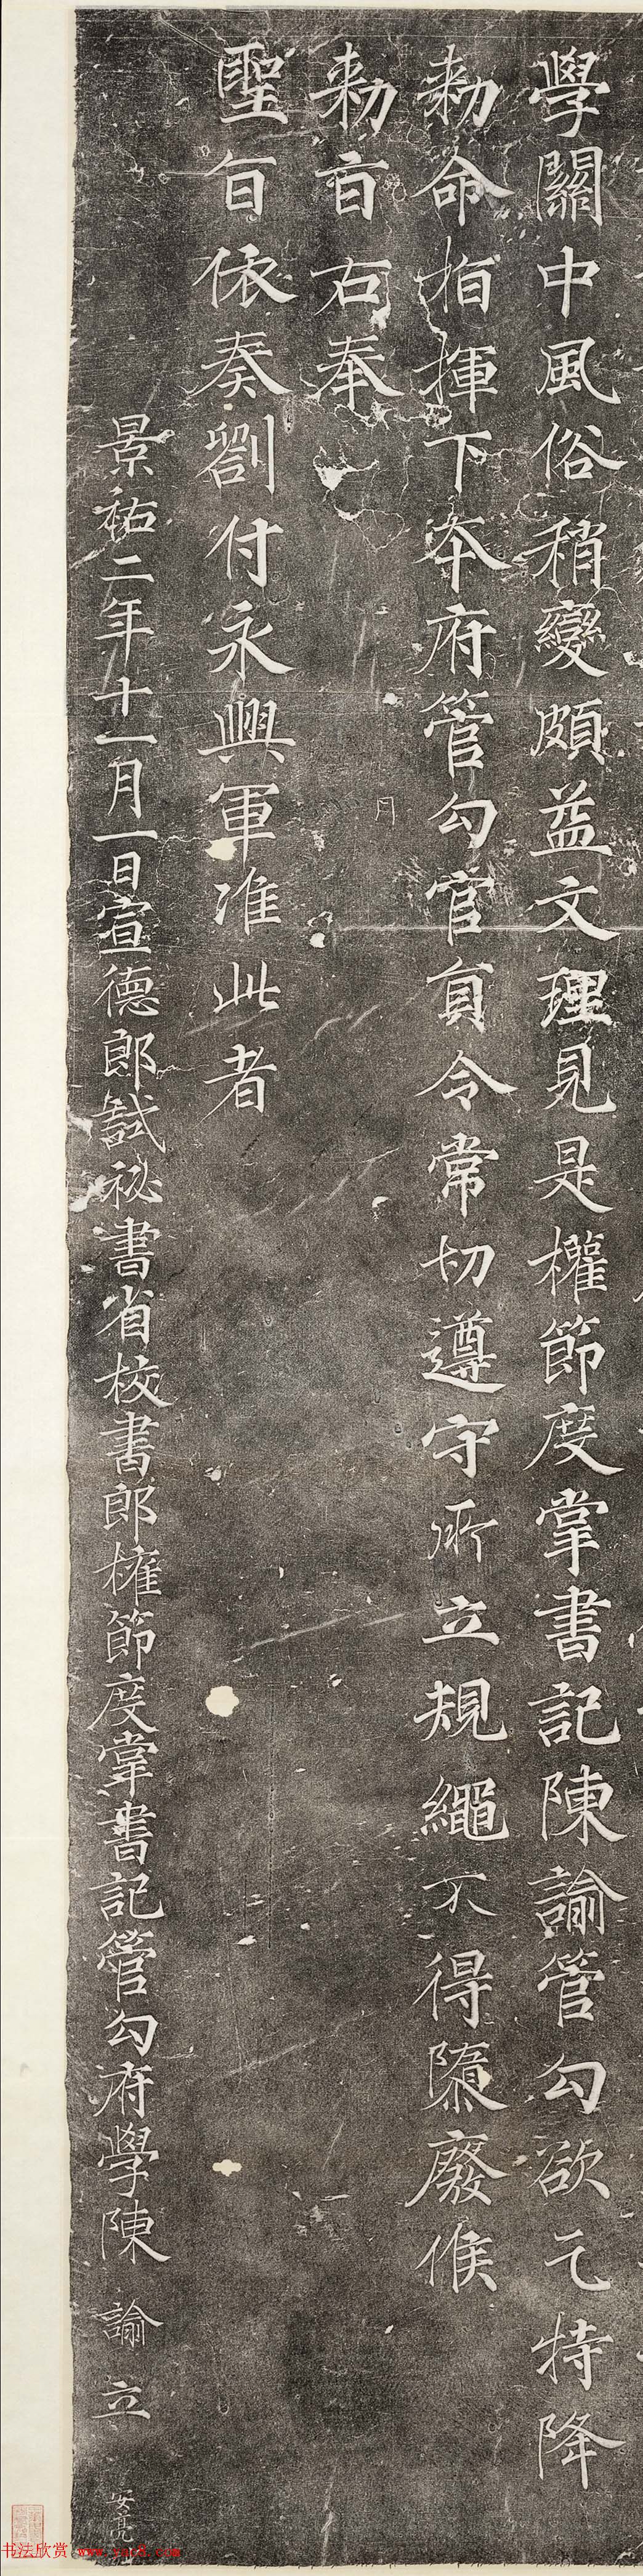 學關中風俗稍變頗益文理見是權節度掌書記陳諭管勾欲乞特降
勑命指揮下夲府管勾官員令常切遵守所立規繩不得隳廢候
勑旨右奉
聖旨依奏劄付永興軍准此者
景祐二年十一月一日宣德郎試祕書省校書郎權節度掌書記管勾府學陳諭立
安亮
月
书法欣赏 www.yac8.com